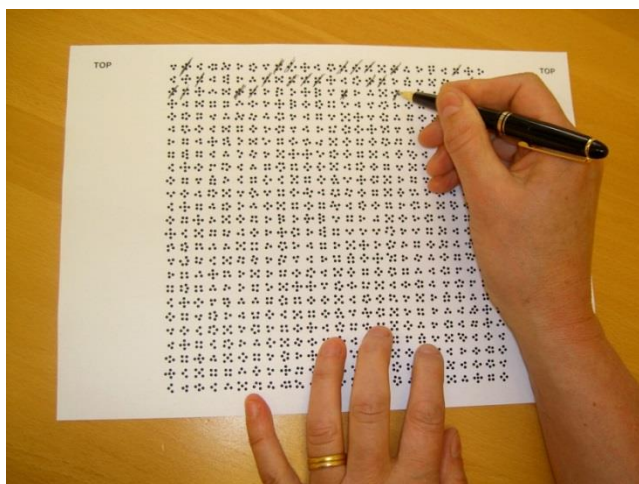 TOP TOP